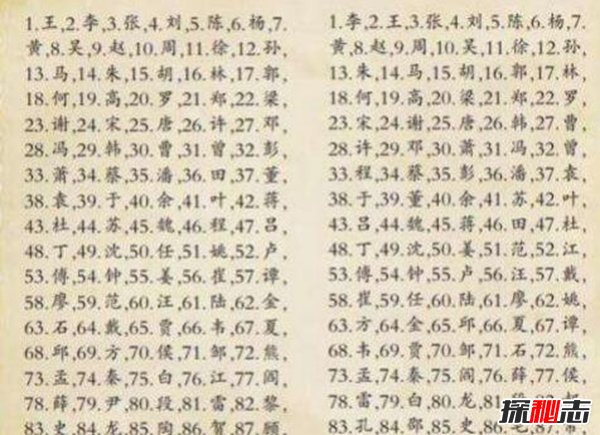 1.王,2.李,3.张,4.刘,5.陈,6.杨,7.
黄,8.吴,9.赵,10.周,11.徐,12.孙,
13.马,14.朱,15.胡,16.林,17.郭,
18.何,19.高,20.罗,21.郑,22.梁,
23.谢,24.宋,25.唐,26.许,27.邓,
28.冯,29.韩,30.曹,31.曾,32.彭,
33.萧,34.蔡,35.潘,36.田,37.董,
38.袁,39.于,40.余,41.叶,42.蒋,
43.杜,44.苏,45.魏,46.程,47.吕,
48.丁,49.沈,50.任,51.姚,52.卢,
53.傅,54.钟,55.姜,56.崔,57.谭,
58.廖,59.范,60.汪,61.陆,62.金,
63.石,64.戴,65.贾,66.韦,67.夏,
68.邱,69.方,70.侯,71.邹,72.熊,
73.孟,74.秦,75.白,76.江,77.阎,
78.薛,79.尹,80.段,81.雷,82.黎,
83.史,84.龙,85.陶,86.贺,87.顾
1.李,2.王,3.张,4.刘,5.陈,6.杨,7.
黄,8.赵,9.周,10.吴,11.徐,12.孙,
13.朱,14.马,15.胡,16.郭,17.林,
18.何,19.高,20.梁,21.郑,22.罗,
23.宋,24.谢,25.唐,26.韩,27.曹,
28.许,29.邓,30.萧,31.冯,32.曾,
33.程,34.蔡,35.彭,36.潘,37.袁,
38.于,39.董,40.余,41.苏,42.叶,
43.吕,44.魏,45.蒋,46.田,47.杜,
48.丁,49.沈,50.姜,51.范,52.江,
53.傅,54.钟,55.卢,56.汪,57.戴,
58.崔,59.任,60.陆,61.廖,62.姚,
63.方,64.金,65.邱,66.夏,67.谭,
68.韦,69.贾,70.邹,71.石,72.熊,
73.孟,74.秦,75.阎,76.薛,77.侯,
78.雷,79.白,80.龙,81.段
83.孔,84.邵,85.史,86.毛,87.常
探秘志